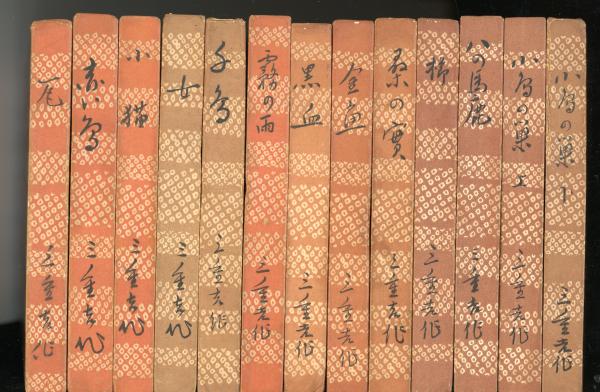 小鳥の巣 下
三重吉作
小鳥の巣 上
三重吉作
八の馬鹿
三重吉作
櫛
三重吉作
桑の實
三重吉作
金魚
三重吉作
黒血
三重吉作
霧の雨
三重吉作
千鳥
三重吉作
女
三重吉作
小猫
三重吉作
赤い鳥
三重吉作
瓦
三重吉作